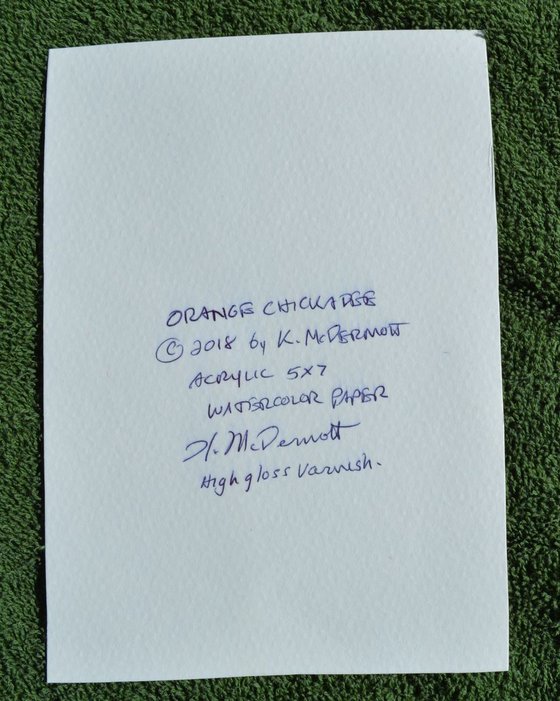 ORANGE CHICKADEE
© 2018 by K. McDERMOTT
ACRYLIC 5X7
WATERCOLOR PAPER
K. McDermott
High gloss Varnish.